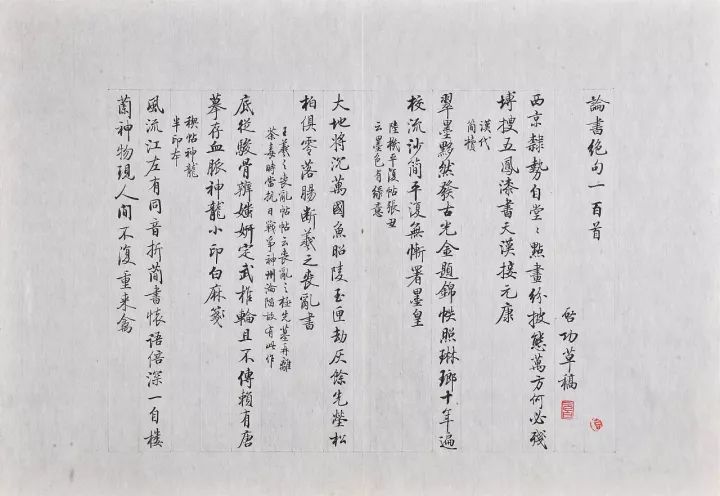 論書絕句一百首
启功草稿
西京隸勢自堂〻點畫紛披態萬方何必殘
塼搜五鳳漆書天漢接元康
漢代
簡牘
翠墨黟然發古光金題錦帙照琳瑯十年遍
校流沙簡平復無慚署墨皇
陸機平復帖張丑
云墨色有綠意
大地將沉萬國魚昭陵玉匣劫灰餘先塋松
柏俱零落腸斷羲之喪亂書
王羲之喪亂帖帖云喪亂之極先墓再離
荼毒時當抗日戰爭神州淪陷故有此作
底從駿骨辨媸妍定武椎輪且不傳賴有唐
摹存血脈神龍小印白麻箋
稧帖神龍
半印本
風流江左有同音折簡書懷語倍深一自樓
蘭神物現人間不復重来禽